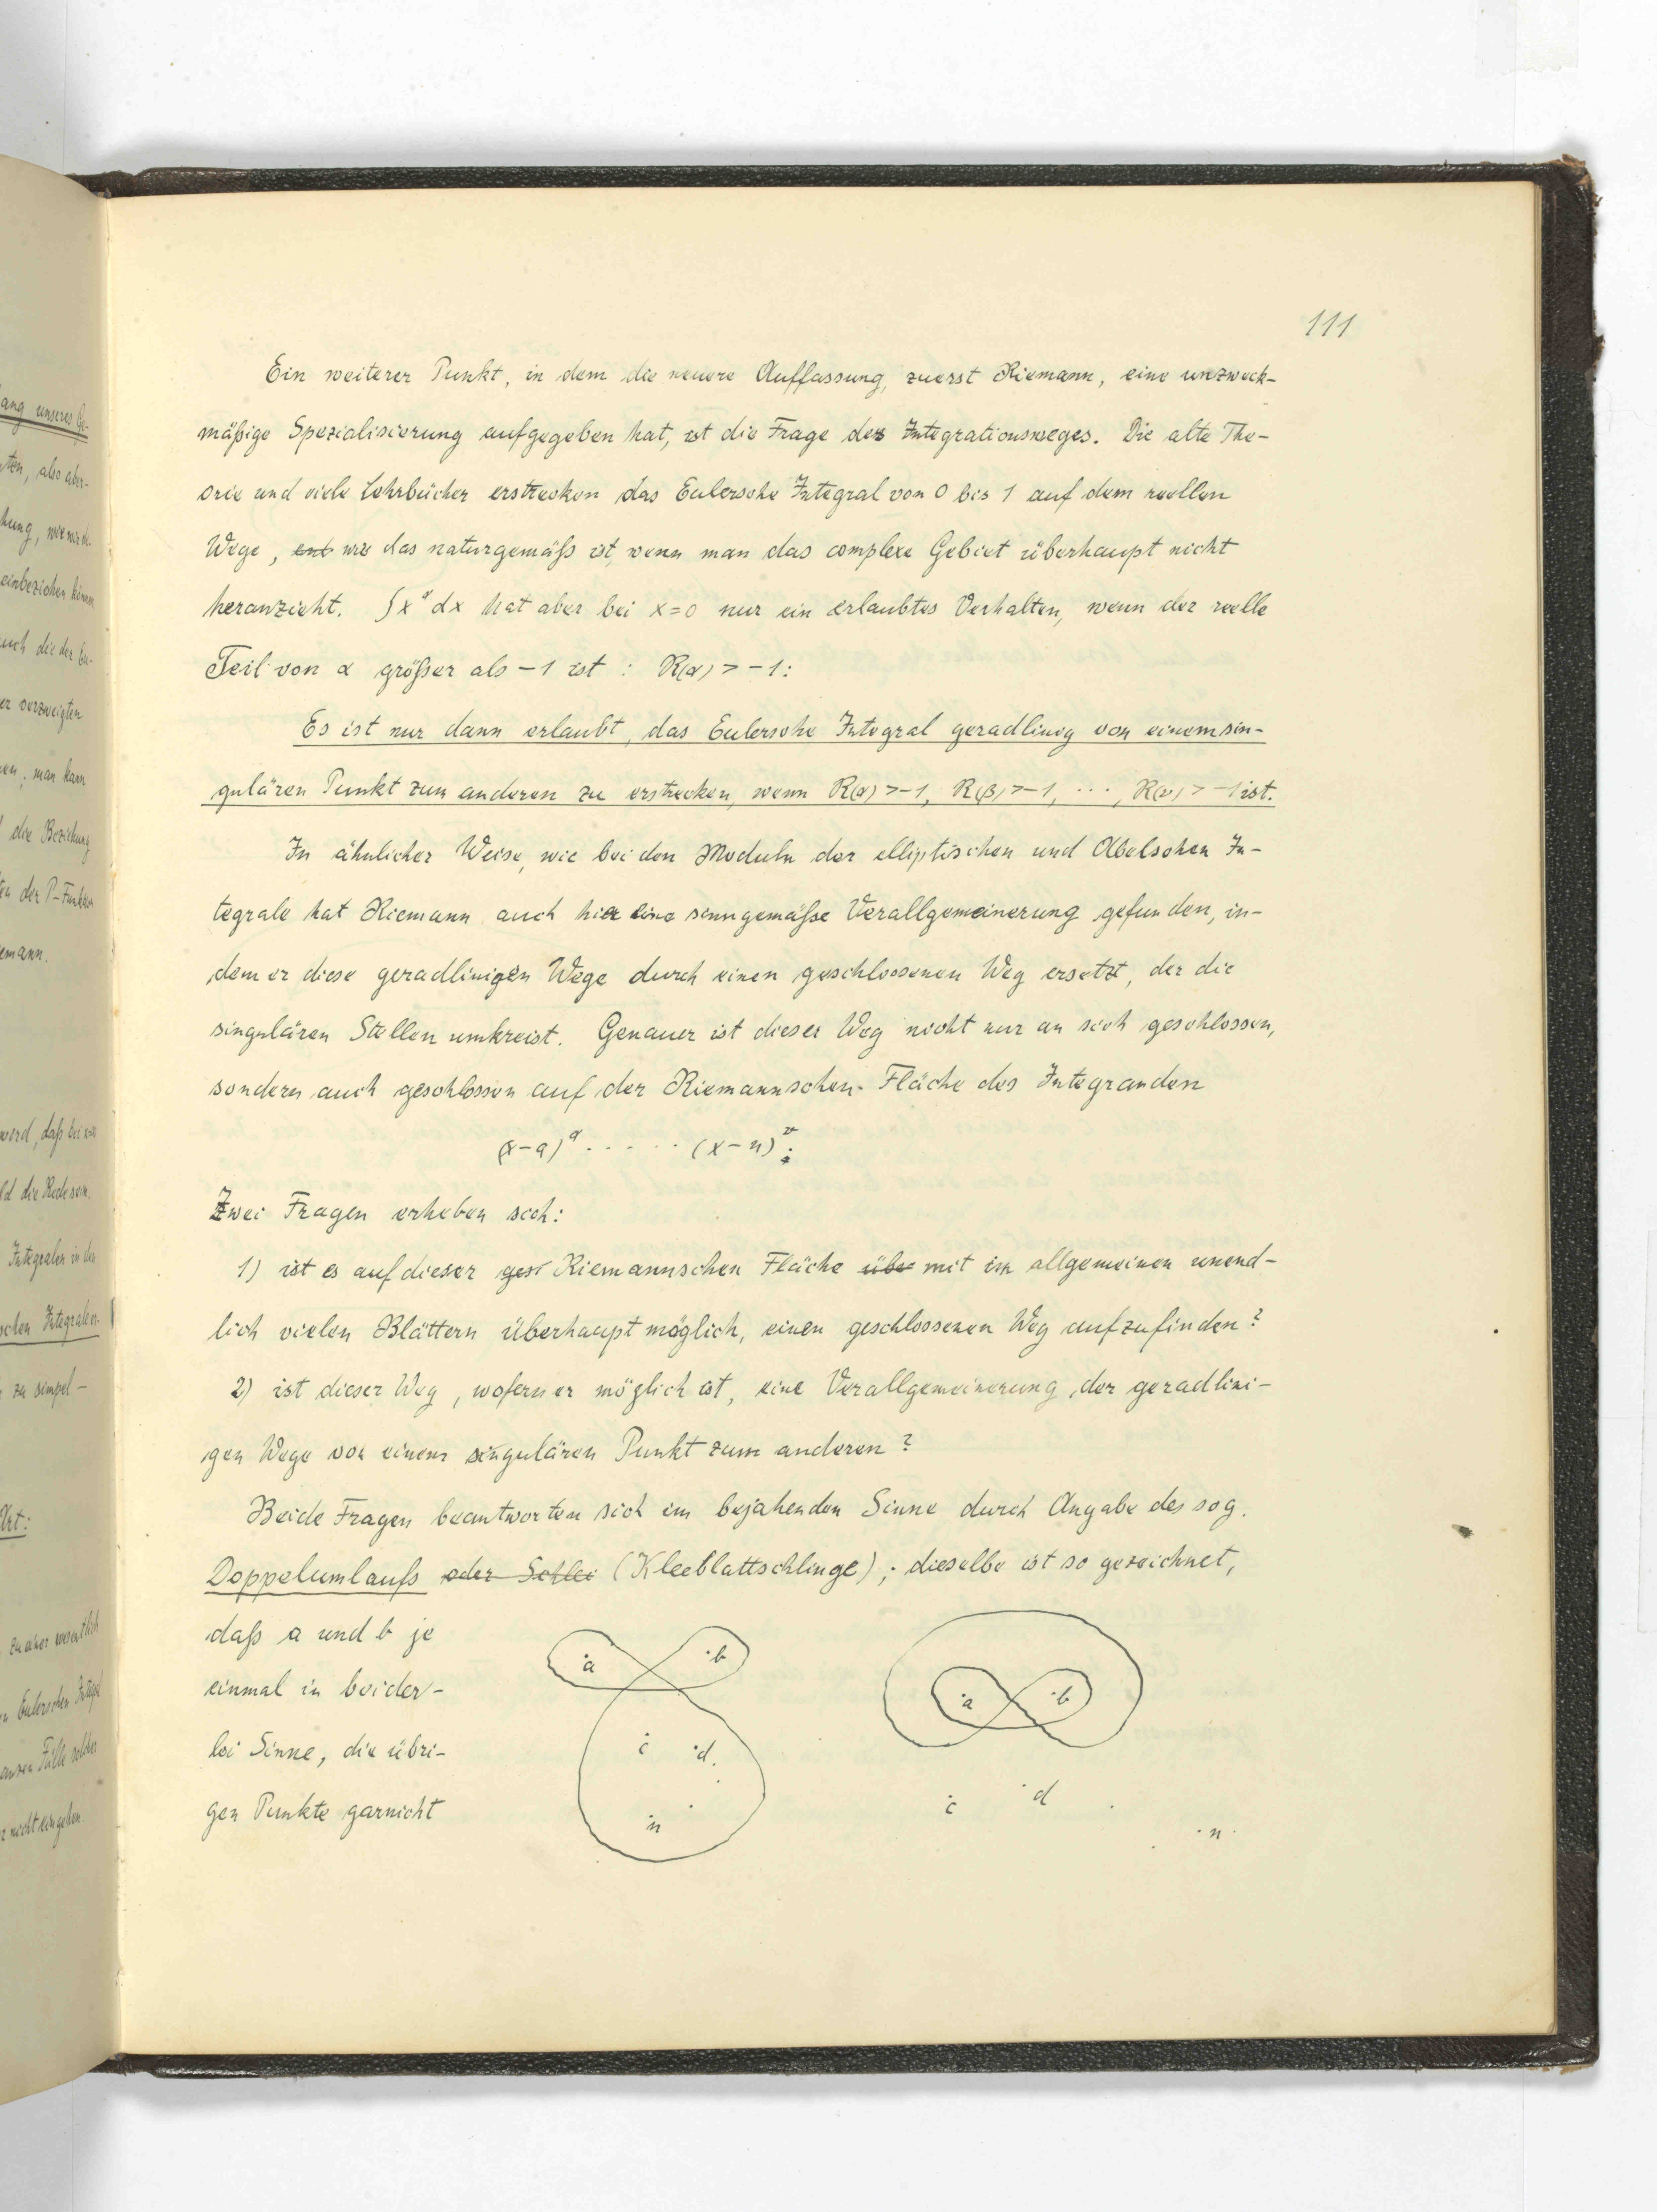 111
Ein weiterer Punkt, in dem die neuere Auffassung, zuerst Riemann, eine unzweck-
mäßige Spezialisierung aufgegeben hat, ist die Frage des Integrationsweges. Die alte The-
orie und viele Lehrbücher erstrecken das Eulersche Integral von 0 bis 1 auf dem reellen
Wege, ent wie das naturgemäß ist, wenn man das complexe Gebiet überhaupt nicht
heranzieht. ∫x^α dx hat aber bei x=0 nur ein erlaubtes Verhalten, wenn der reelle
Teil von α größer als −1 ist : R(α) > −1:
Es ist nur dann erlaubt, das Eulersche Integral geradlinig von einem sin-
gulären Punkt zum anderen zu erstrecken, wenn R(α) >−1, R(β) >−1, ···, R(ν) > −1 ist.
In ähnlicher Weise, wie bei den Moduln der elliptischen und Abelschen In-
tegrale hat Riemann auch hier eine sinngemäße Verallgemeinerung gefunden, in-
dem er diese geradlinigen Wege durch einen geschlossenen Weg ersetzt, der die
singulären Stellen umkreist. Genauer ist dieser Weg nicht nur an sich geschlossen,
sondern auch geschlossen auf der Riemannschen Fläche des Integranden
(x−a)^α ····· (x−n)^ν.
Zwei Fragen erheben sich:
1) ist es auf dieser gesc Riemannschen Fläche übe mit im allgemeinen unend-
lich vielen Blättern überhaupt möglich, einen geschlossenen Weg aufzufinden?
2) ist dieser Weg, wofern er möglich ist, eine Verallgemeinerung der geradlini-
gen Wege von einem singulären Punkt zum anderen?
Beide Fragen beantworten sich im bejahenden Sinne durch Angabe des sog.
Doppelumlaufs oder Schlei (Kleeblattschlinge); dieselbe ist so gezeichnet,
daß a und b je
einmal in beider-
lei Sinne, die übri-
gen Punkte garnicht
a b
c d
n
a b
c d
n